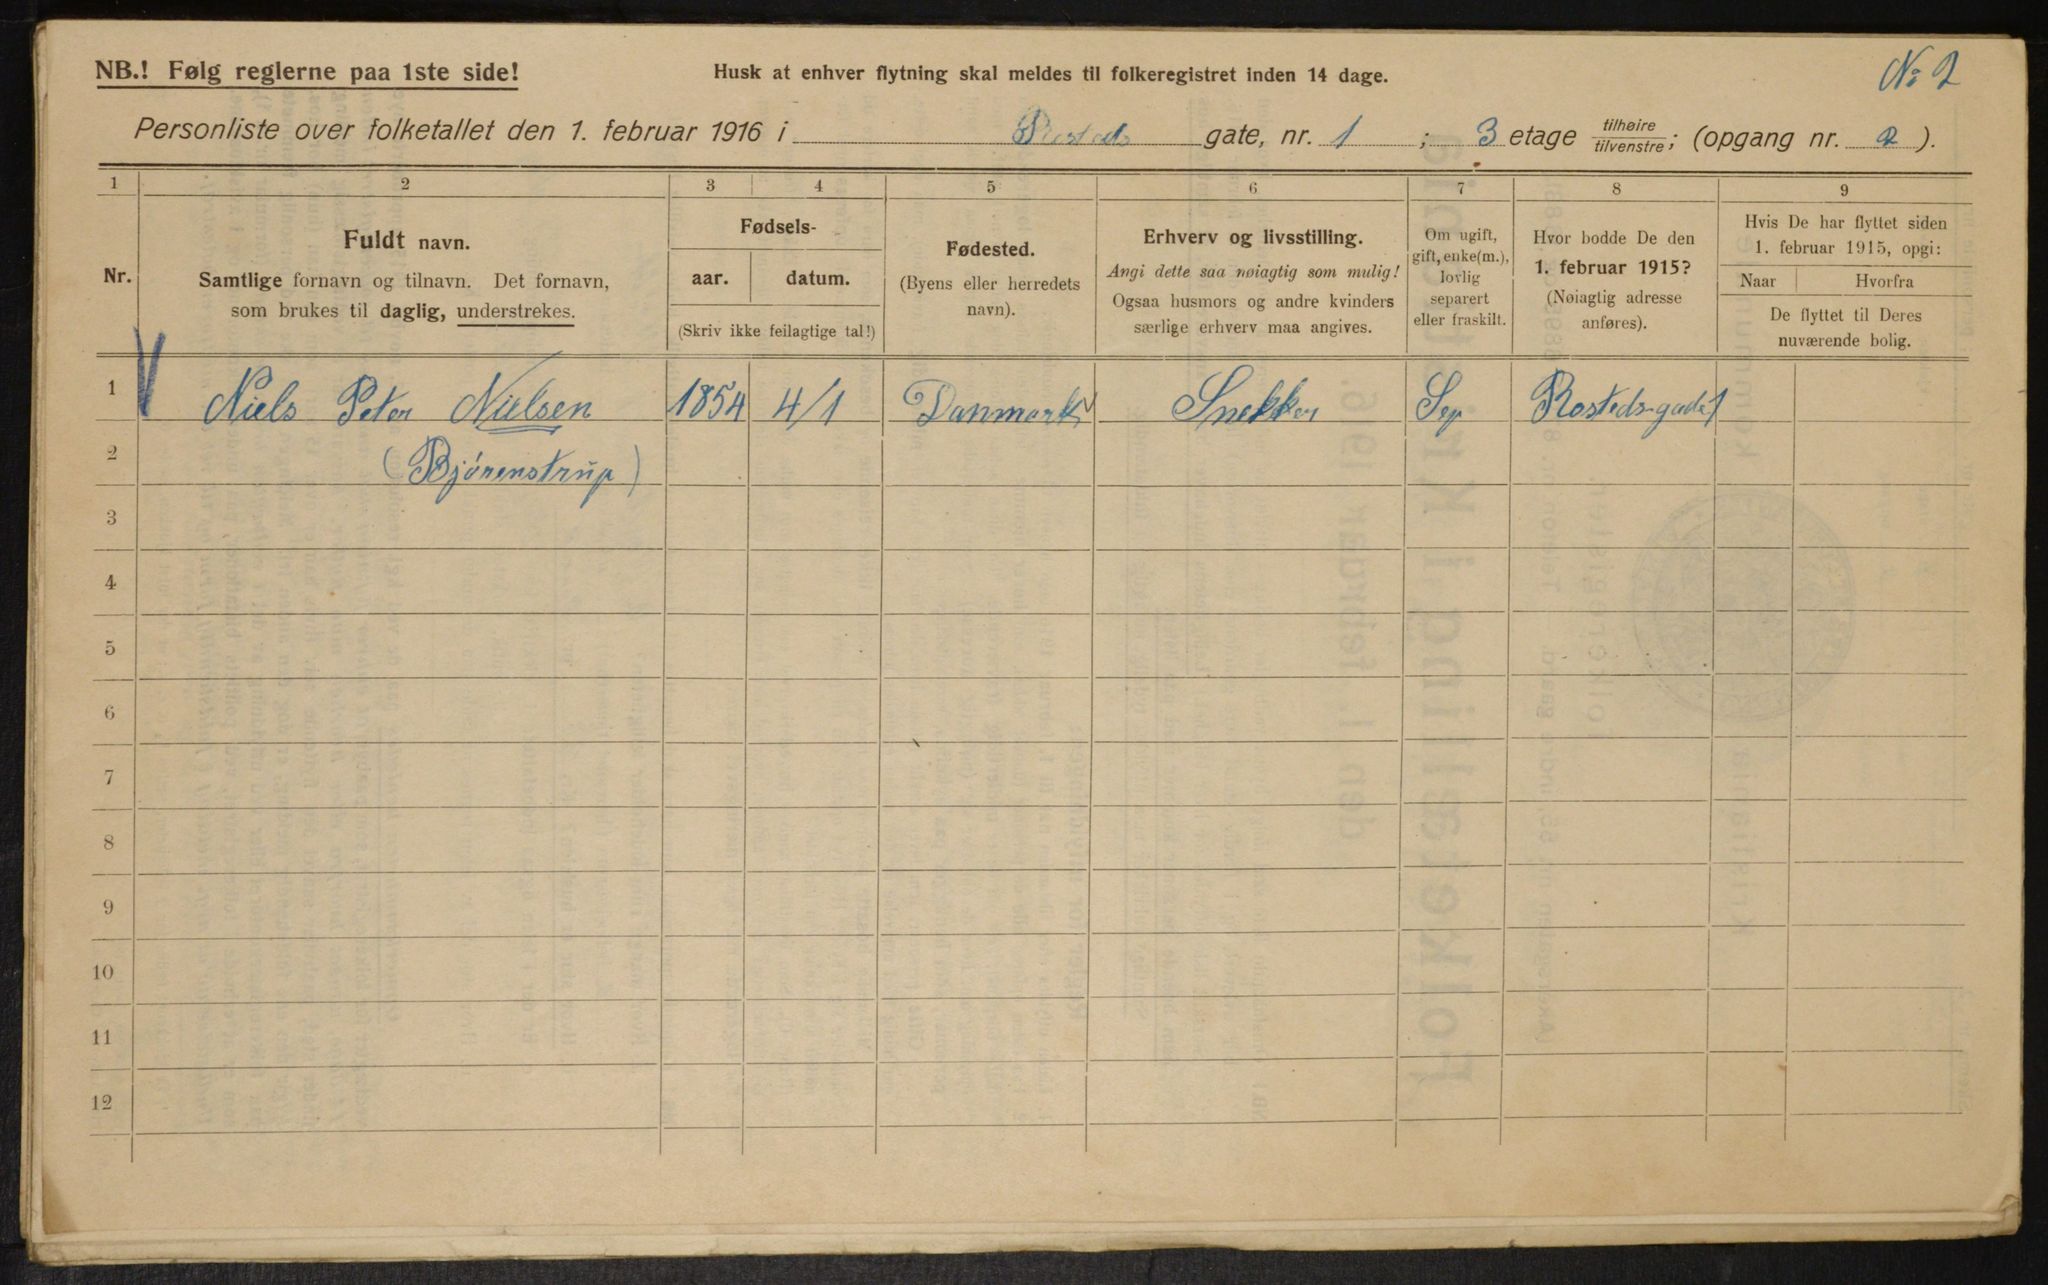 NB.! Følg reglerne paa 1ste side!
Husk at enhver flytning skal meldes til folkeregistret inden 14 dage.
No 2
Personliste over folketallet den 1. februar 1916 i Rosteds gate, nr. 1 ; 3 etage tilhøire/tilvenstre; (opgang nr. 2).
1 2 3 4 5 6 7 8 9
Nr.
Fuldt navn.
Samtlige fornavn og tilnavn. Det fornavn,
som brukes til daglig, understrekes.
Fødsels-
aar. datum.
(Skriv ikke feilagtige tal!)
Fødested.
(Byens eller herredets
navn).
Erhverv og livsstilling.
Angi dette saa nøiagtig som mulig!
Ogsaa husmors og andre kvinders
særlige erhverv maa angives.
Om ugift,
gift, enke(m.),
lovlig
separert
eller fraskilt.
Hvor bodde De den
1. februar 1915?
(Nøiagtig adresse
anføres).
Hvis De har flyttet siden
1. februar 1915, opgi:
Naar Hvorfra
De flyttet til Deres
nuværende bolig.
1 Niels Peter Nielsen 1854 4/1 Danmark Snekker Sep Rostedsgade 1
2 (Bjørenstrup)
3
4
5
6
7
8
9
10
11
12